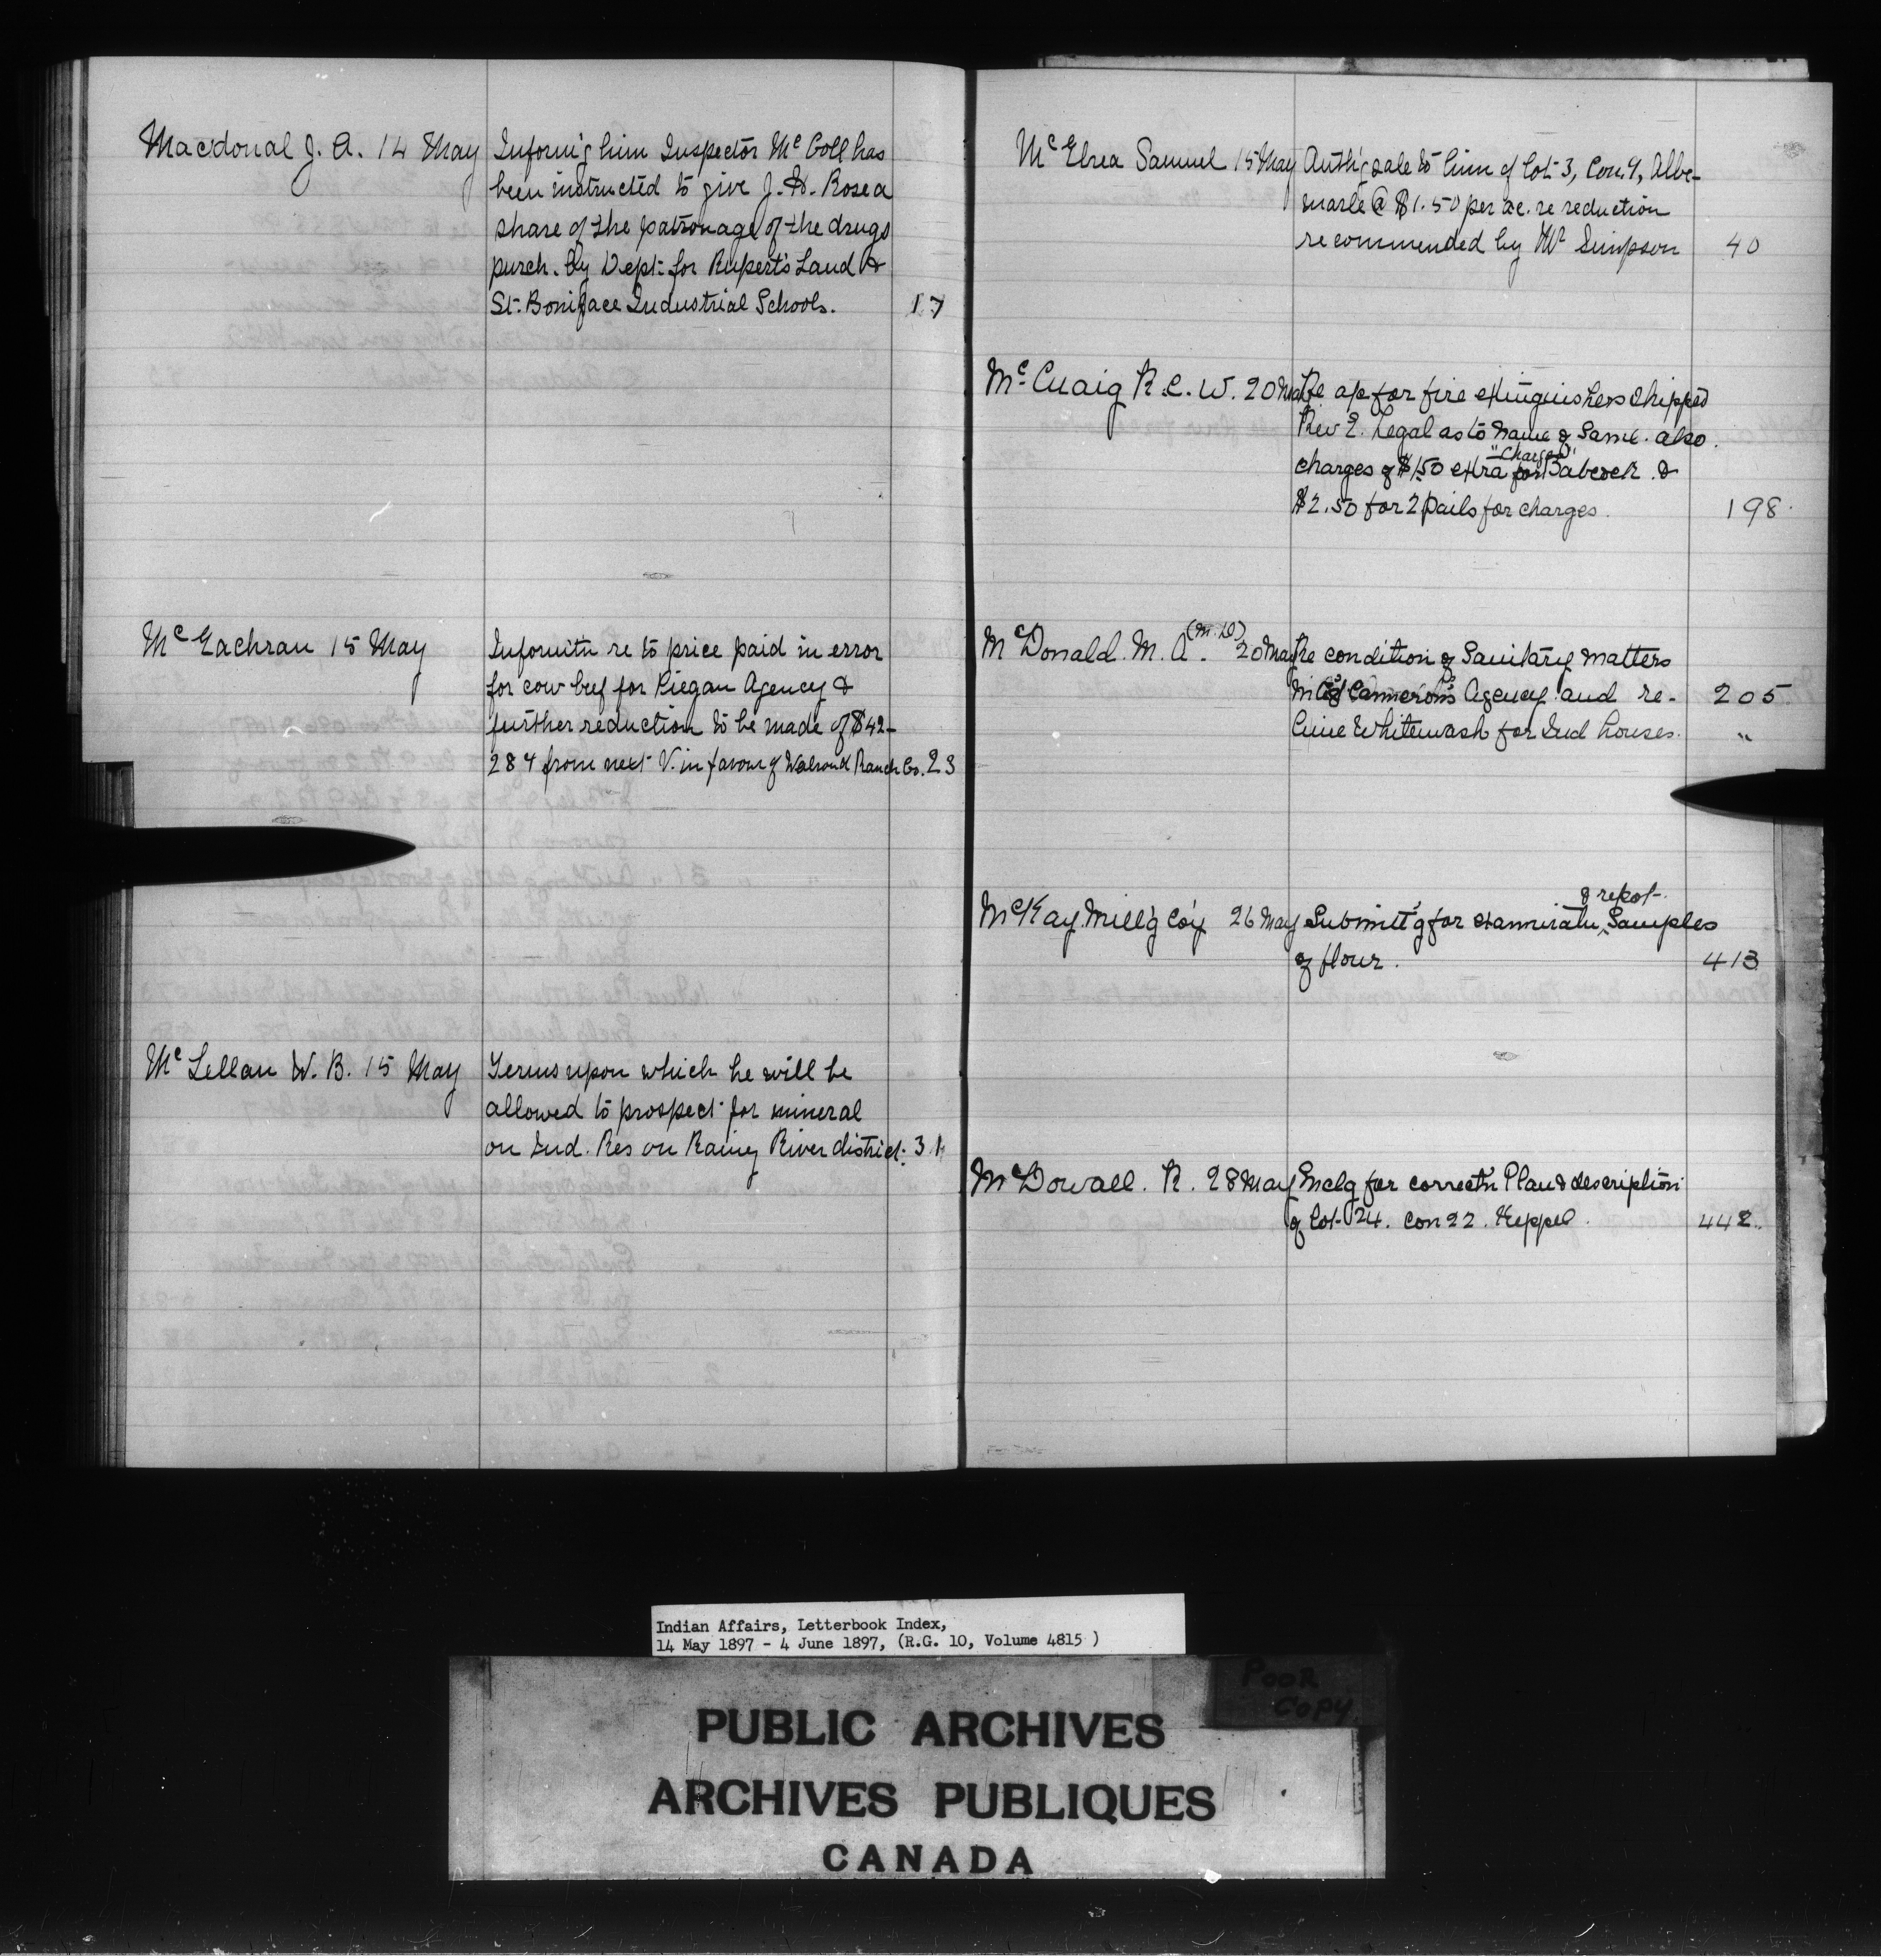 Macdonal J. A. 14 May Inform'g him Inspector McColl has
been instructed to give J. H. Rose a
share of the patronage of the drugs
purch. by Dept. for Rupert's Land &
St. Boniface Industrial Schools. 17
McEachran 15 May Informitn re to price paid in error
for cow beef for Piegan Agency &
further reduction to be made of $42-
284 from next V. in favour of Walrond Ranch Co. 23
McLellan W. B. 15 May Terms upon which he will be
allowed to prospect for mineral
on Ind. Res on Rainy River district. 31
McElrea Samuel 15 May Auth'g sale to him of Lot 3, Con. 9, Albe-
marle @ $1.50 per ac. re reduction
recommended by Mr Simpson 40
McCuaig R. C. W. 20 May Re ap for fire extinguishers shipped
Rev E. Legal as to name of Same. also
"Charges"
charges of $1.50 extra for Babcock &
$2.50 for 2 pails for charges. 198
McDonald. M. A. (M.D) 20 May Re condition of Sanitary matters
Cameron's Agency and re- 205
lime Whitewash for Ind houses. "
8 repot-
McKay Mill'g Co'y 26 May Submitt'g for examinatn Samples
of flour. 413
McDowall. R. 28 May Enclg for correctn Plan & description
of Lot 24. Con 22. Keppel. 442
Indian Affairs, Letterbook Index,
14 May 1897 - 4 June 1897, (R.G. 10, Volume 4815 )
POOR
COPY
PUBLIC ARCHIVES
ARCHIVES PUBLIQUES
CANADA